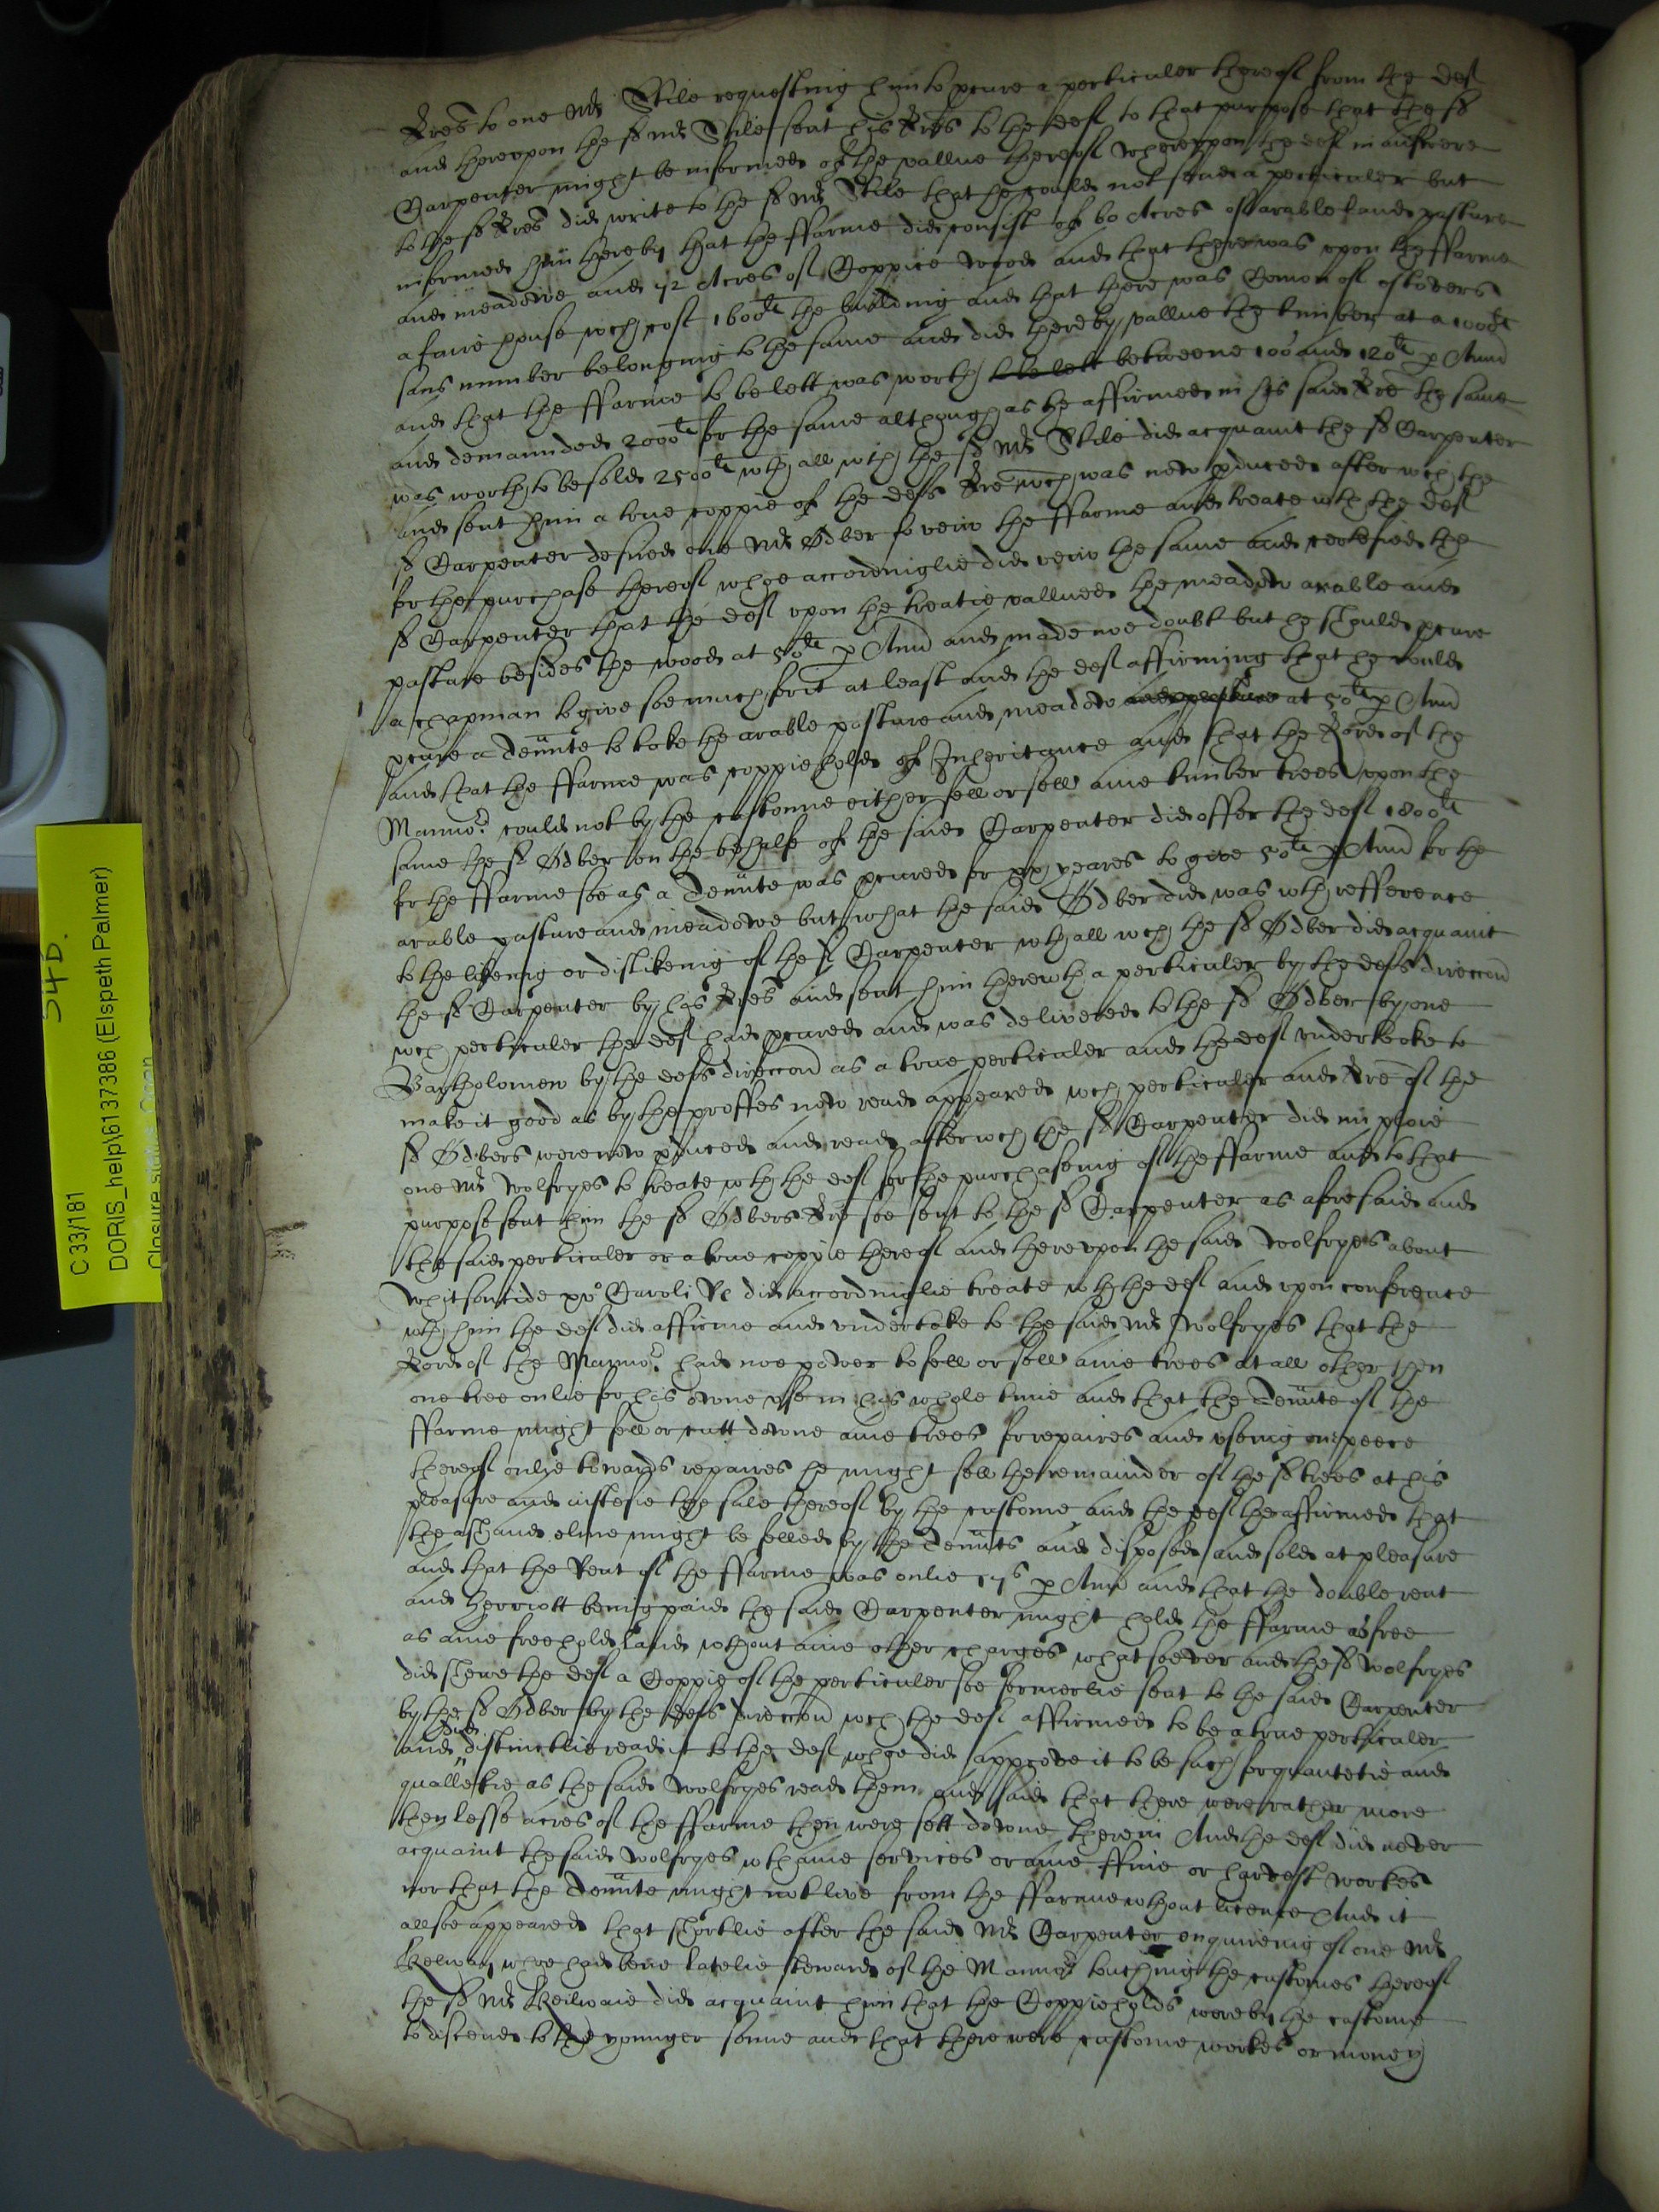 Lres to one Mr Stile requesting him to pcure a perticuler thereof from the deft
and therevpon the sd Mr Stile sent his Lres to the deft to that purpose that the sd
Carpenter might be informed of the vallue thereof Wherevpon the deft in answere
to the sd Lres did write to the sd Mr Stile that he could not send a perticuler but
informed him thereby that the ffarme did consist of 60 Acres of arable land pasture
and meadowe and 42 Acres of Coppice wood and that there was vpon the ffarme
a faire house wch cost 1600li the building and that there was Comon of estovers
sans number belonging to the same and did thereby vallue the timber at a 1000li
and that the ffarme to be lett was worth to be lett betweene 100 and 120li p Annu
and demaunded 2000li for the same although as he affirmed in his said Lre the same
was worth to be sold 2500li wth all wch the sd Mr Stile did acquaint the sd Carpenter
and sent him a true coppie of the defts Lre wch was now pduced after wch the
sd Carpenter desired one Mr Odber to veiw the ffarme and treate wth the deft
for the purchase thereof whoe accordinglie did veiw the same and certefied the
sd Carpenter that the deft vpon the treatie vallued the meadow arable and
pasture besides the wood at 50li p Annu and made noe doubt but he should pcure
a chapman to give soe much for it at least and the deft affirming that he would
pcure a Tennte to take the arable pasture and meadow and pasture at 50li p Annu
and that the ffarme was coppiehold of Inheritance and that the Lord of the
Mannor could not by the custome either fell or sell anie timber trees vpon the
same the sd Odber on the behalfe of the said Carpenter did offer the deft 1800li
for the ffarme soe as a Tennte was pcured for xxj yeares to give 50li p Annu for the
arable pasture and meadowe but what the said Odber did was wth refference
to the likeing or dislikeing of the sd Carpenter wth all wch the sd Odber did acquaint
the sd Carpenter by his Lres and sent him therewth a perticuler by the defts direccon
wch perticuler the deft had pcured and was delivered to the sd Odber by one
Bartholomew by the defts direccon as a true perticuler and the deft vndertooke to
make it good as by the proffes now read appeared wch perticuler and Lre of the
sd Odbers were now pduced and read after wch the sd Carpenter did imploie
one Mr Wolfryes to treate wth the deft for the purchaseing of the ffarme and to that
purpose sent him the sd Odbers Lre soe sent to the sd Carpenter as aforesaid and
the said perticuler or a true coppie thereof and therevpon the said Wolfryes about
Whitsontide xvo Caroli Rs did accordinglie treate wth the deft and vpon conference
wth him the deft did affirme and vndertake to the said Mr Wolfryes that the
Lord of the Mannor had noe power to fell or sell anie trees at all other then
one tree onlie for his owne vse in his whole time and that the Tennte of the
ffarme might fell or cutt downe anie trees for repaires and vseing one peece
thereof onlie towards repaires he might sell the remainder of the sd trees at his
pleasure and iustefie the sale thereof by the custome and the deft he affirmed that
the ash and elme might be felled by the Tennts and disposed and sold at pleasure
and that the Rent of the ffarme was onlie 17s p Annu and that the double rent
and Herriott being paid the said Carpenter might hold the ffarme as free
as anie freehold land wthout anie other charges whatsoever and the sd Wolfryes
did shewe the deft a Coppie of the perticuler soe formerlie sent to the said Carpenter
by the sd Odber by the defts direccon wch the deft affirmed to be a true perticuler
and did distinctlie read it to the deft whoe did approve it to be such for quantetie and
qualletie as the said Wolfryes read them and said that there were rather more
then lesse acres of the ffarme then were sett downe therein And the deft did never
acquaint the said Wolfryes wth anie services or anie ffine or harvest workes
nor that the Tennte might not live from the ffarme wthout licence And it
allsoe appeared that shortlie after the said Mr Carpenter enquireing of one Mr
Kelway whoe had bene latelie steward of the Mannor touching the customes thereof
the sd Mr Keilwaie did acquaint him that the Coppieholds were by the custome
to discend to the younger sonne and that there were custome workes or money
54D.
C 33/181
DORIS_help\6137386 (Elspeth Palmer)
Closure status: Open